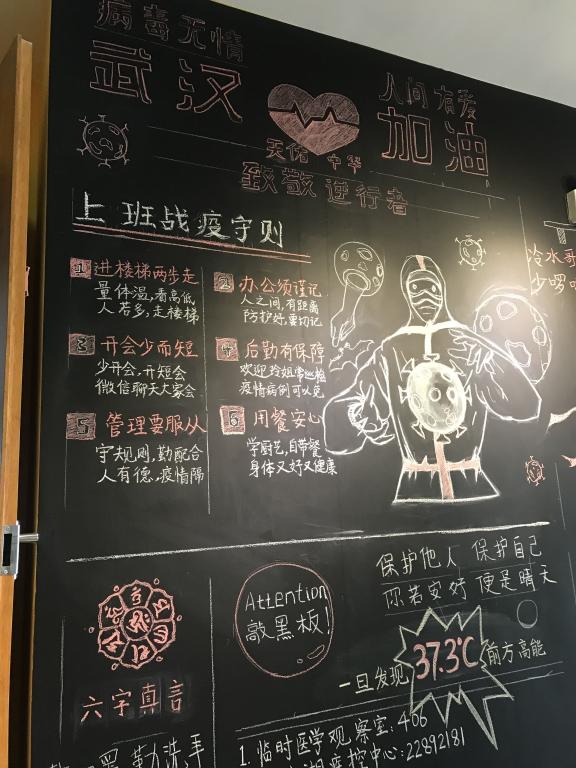 病毒无情
武汉
人间有爱
加油
天佑中华
致敬逆行者
上班战疫守则
1 进楼梯两步走
量体温,看高低,
人若多,走楼梯
2 办公须谨记
人之间,有距离
防护好,要切记
3 开会少而短
少开会,开短会
微信聊天大家会
4 后勤有保障
欢迎玲姐常巡检
疫情病例可以免
5 管理要服从
守规则,勤配合
人有德,疫情隔
6 用餐安心
学厨艺,自带餐
身体又好又健康
冷水哥
少啰
六字真言
Attention
敲黑板!
保护他人 保护自己
你若安好 便是晴天
一旦发现 37.3℃ 前方高能
1.临时医学观察室:406
疾控中心:22892181
罩 勤洗手